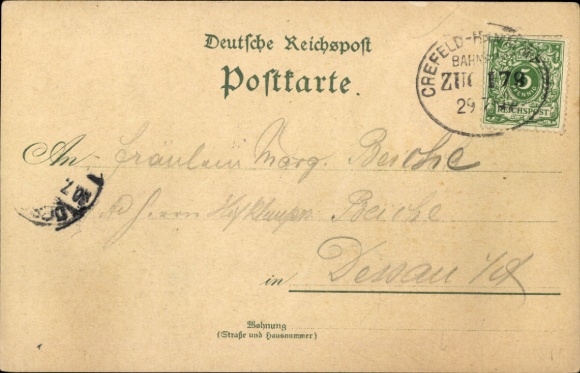 Deutsche Reichspost
Postkarte.
CREFELD-
BAHN
ZUG 179
29 7
PFENNIG
REICHSPOST
An Fräulein Marg. Beiche
Ad Herrn Beiche
in Dessau
30 7
Wohnung
(Straße und Hausnummer)